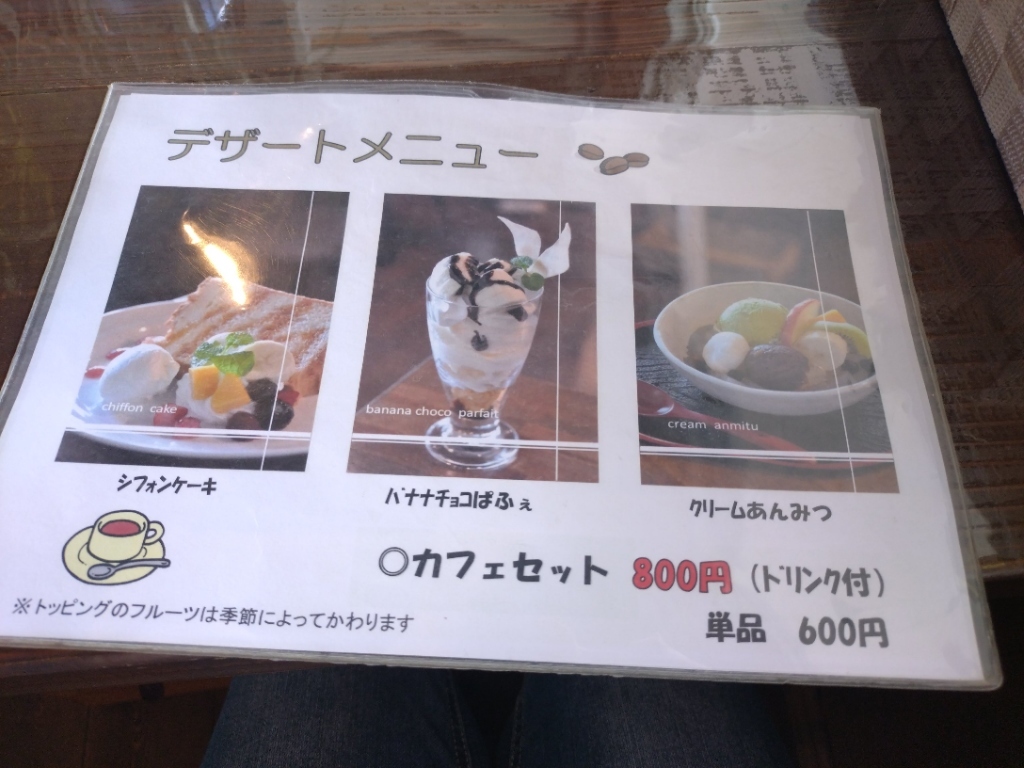 デザートメニュー
chiffon cake
banana choco parfait
cream anmitu
シフォンケーキ
バナナチョコぱふぇ
クリームあんみつ
○カフェセット 800円(ドリンク付)
※トッピングのフルーツは季節によってかわります
単品 600円